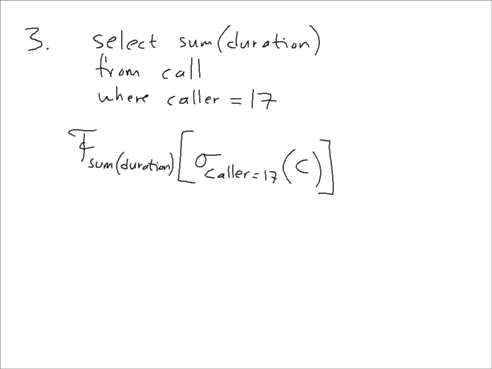 3. select sum(duration)
from call
where caller = 17
ℱ sum(duration) [σ caller=17 (C)]